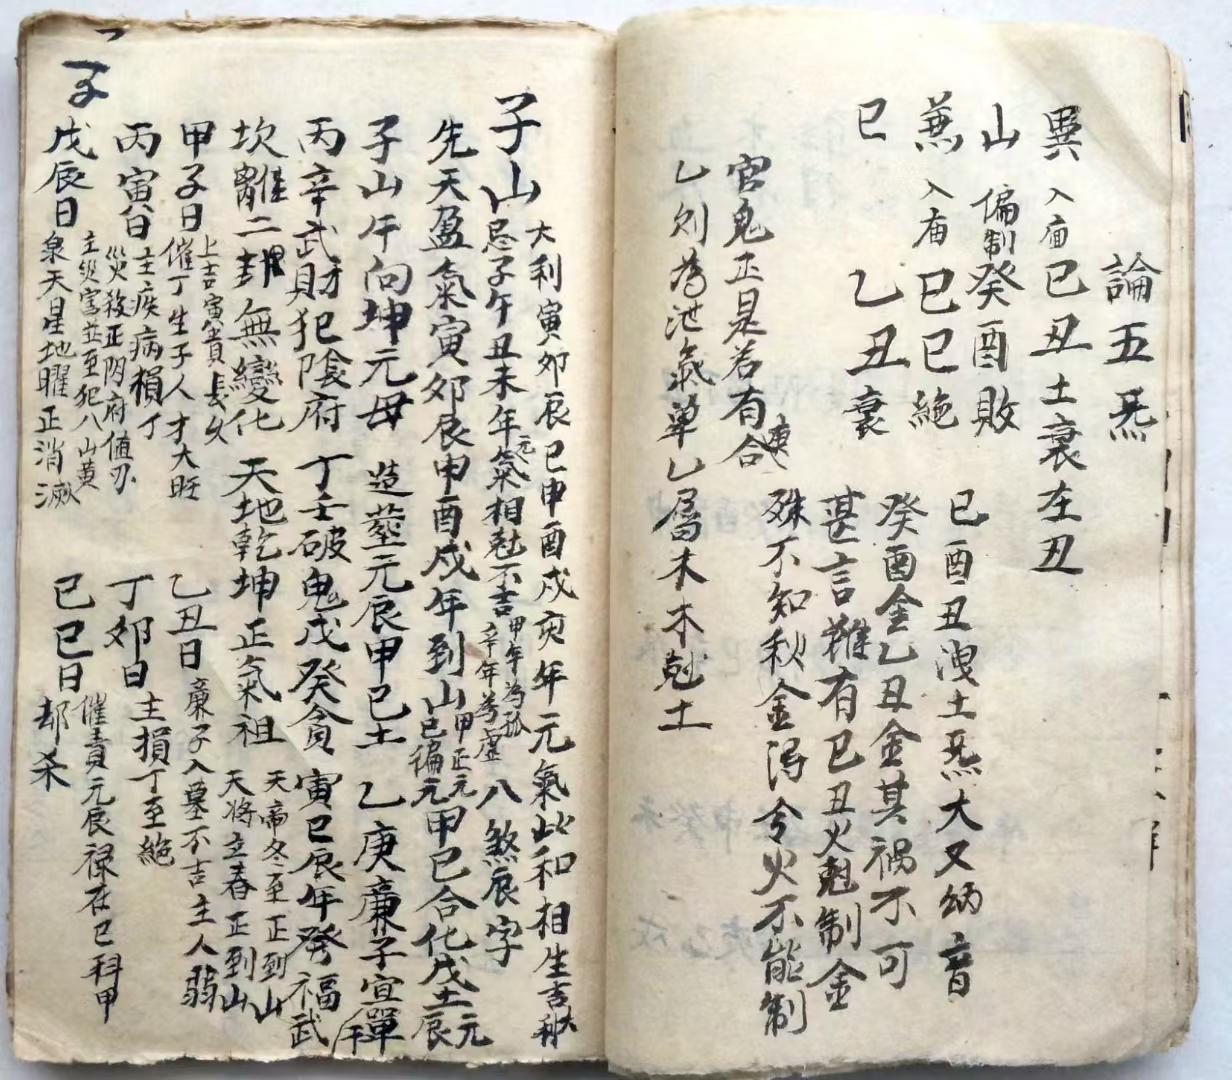 論五炁
巽入庙己丑土衰左丑
山偏制癸酉敗
兼入庙己巳絕
巳乙丑衰
己酉丑洩土炁大又納音
癸酉金乙丑金其禍不可
甚言雖有己丑火尅制金
殊不知秋金得令火不能制
官鬼正是若有合庚
乙则為泄氣單乙屬木木尅土
子山
大利寅夘辰巳申酉戍亥年元氣比和相生吉大利
忌子午丑未年元氣相尅不吉甲年為孤辛年為虛八煞辰字
先天盈氣寅夘辰申酉戍年到山甲正元己偏元甲己合化戊土元辰
子山午向坤元母造塟元辰甲己土乙庚廉子宣單
丙辛武財犯陰府丁壬破鬼戊癸貪寅巳辰年發福武
坎離二卦無變化天地乾坤正氣祖天帝冬至正到山天将立春正到山
甲子日上吉寅貴長火催丁生子人才大旺乙丑日廉子入墓不吉主人弱
丙寅日主疾病損丁災殺正阴府值刃丁夘日主損丁至絕
戊辰日主災宫並至犯八山黄泉天星地曜正消滅己巳日催貴元辰禄在巳科甲却杀